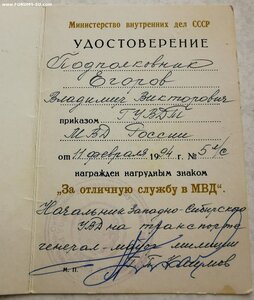 Министерство внутренних дел СССР
УДОСТОВЕРЕНИЕ
Подполковник
Егоров
Владимир Викторович
приказом ГУВДТ
МВД России
от 11 февраля 1994 г. № 5 л/с
награжден нагрудным знаком
„За отличную службу в МВД".
Начальник Западно-Сибирского
УВД на транспорте
генерал-майор милиции
М. П.